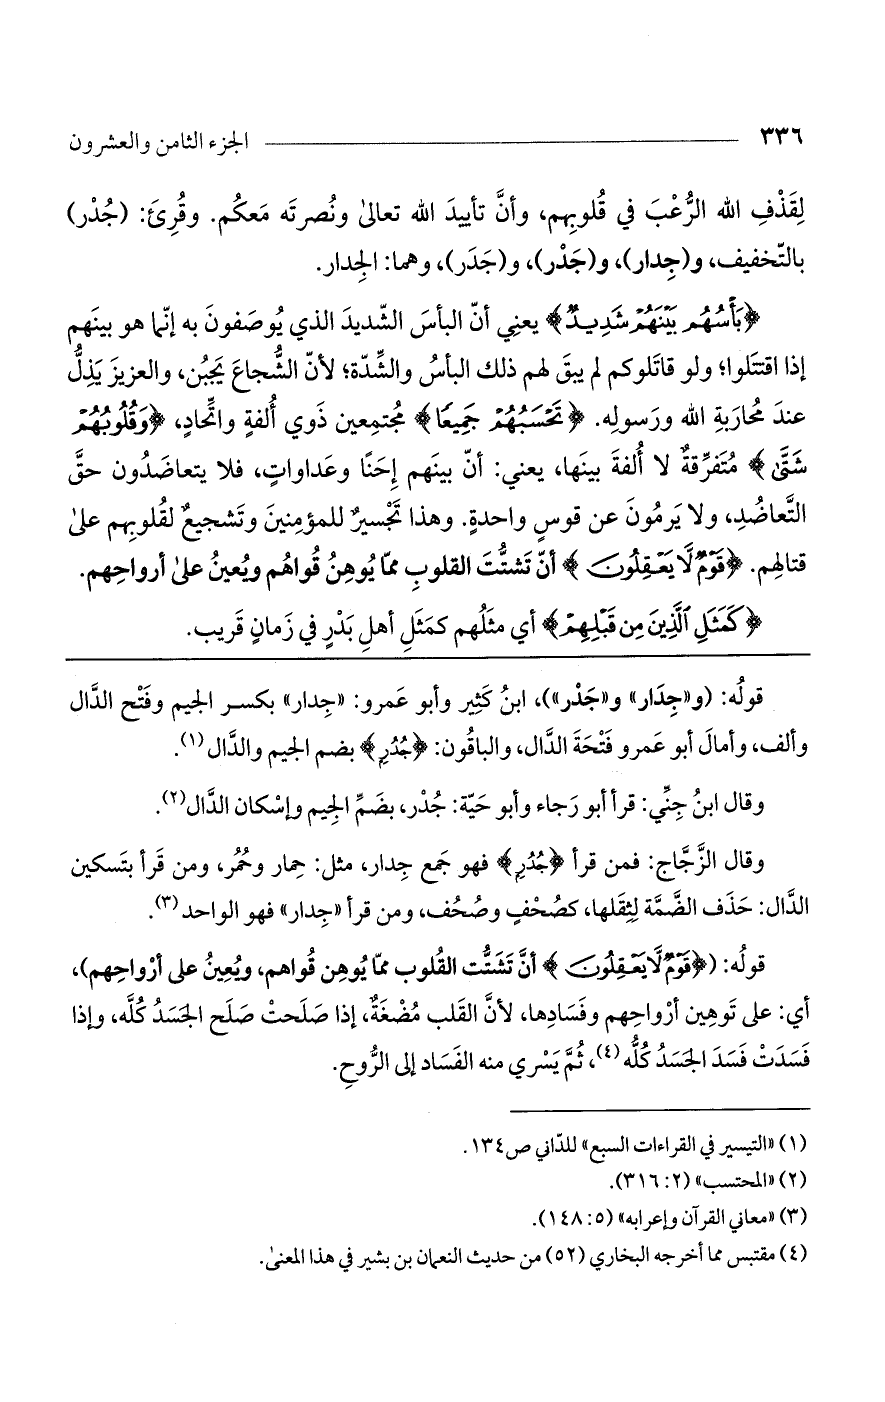 ٣٣٦ الجزء الثامن والعشرون
لِقَذْفِ الله الرُّعْبَ في قُلوبِهم، وأنَّ تأييدَ الله تعالىٰ ونُصرتَه مَعكُم. وقُرِئَ: (جُدْر)
بالتّخفيف، و(جِدار)، و(جَدْر)، و(جَدَر)، وهما: الجِدار.
﴿بَأْسُهُم بَيْنَهُمْ شَدِيدٌ﴾ يعنِي أنّ البأسَ الشّديدَ الذي يُوصَفونَ به إنّما هو بينَهم
إذا اقتتَلوا؛ ولو قاتَلوكم لم يبقَ لهم ذلك البأسُ والشِّدّة؛ لأنّ الشُّجاعَ يَجبُن، والعزيزَ يَذِلُّ
عندَ مُحارَبةِ الله ورَسولِه. ﴿تَحْسَبُهُمْ جَمِيعًا﴾ مُجتمِعين ذَوي أُلفةٍ واتِّحادٍ، ﴿وَقُلُوبُهُمْ
شَتَّىٰ﴾ مُتَفرِّقةٌ لا أُلفةَ بينَها، يعني: أنّ بينَهم إحَنًا وعَداواتٍ، فلا يتعاضَدُون حقَّ
التَّعاضُدِ، ولا يَرمُونَ عن قوسٍ واحدةٍ. وهذا تَجْسيرٌ للمؤمِنينَ وتَشجيعٌ لقُلوبِهم علىٰ
قتالِهم. ﴿قَوْمٌ لَّا يَعْقِلُونَ﴾ أنّ تَشتُّتَ القلوبِ ممّا يُوهِنُ قُواهُم ويُعينُ علىٰ أرواحِهم.
﴿كَمَثَلِ ٱلَّذِينَ مِن قَبْلِهِمْ﴾ أي مثَلُهم كمَثَلِ أهلِ بَدْرٍ في زَمانٍ قَريب.
قولُه: (و«جِدَار» و«جَدْر»)، ابنُ كَثِير وأبو عَمرو: «جِدار» بكسر الجيم وفَتْح الدَّال
وألف، وأمالَ أبو عَمرو فَتْحَةَ الدَّال، والباقُون: ﴿جُدُرٍ﴾ بضم الجيم والدَّال(١).
وقال ابنُ جِنِّي: قرأ أبو رَجاء وأبو حَيّة: جُدْر، بضَمِّ الجِيم وإسْكان الدَّال(٢).
وقال الزَّجَّاج: فمن قرأ ﴿جُدُرٍ﴾ فهو جَمع جِدار، مثل: حِمار وحُمُر، ومن قَرأ بتَسكين
الدَّال: حَذَف الضَّمَّة لِثِقَلها، كصُحْفٍ وصُحُف، ومن قرأ «جِدار» فهو الواحد(٣).
قولُه: (﴿قَوْمٌ لَّا يَعْقِلُونَ﴾ أنَّ تَشَتُّت القُلوب ممّا يُوهِن قُواهم، ويُعِينُ على أرْواحِهم)،
أي: على تَوهِين أرْواحِهم وفَسَادِها، لأنَّ القَلب مُضْغَةٌ، إذا صَلَحتْ صَلَح الجَسَدُ كُلَّه، وإذا
فَسَدَتْ فَسَدَ الجَسَدُ كُلُّه(٤)، ثُمَّ يَسْري منه الفَسَاد إلى الرُّوحِ.
(١) «التيسير في القراءات السبع» للدّاني ص١٣٤.
(٢) «المحتسب» (٢: ٣١٦).
(٣) «معاني القرآن وإعرابه» (٥: ١٤٨).
(٤) مقتبس مما أخرجه البخاري (٥٢) من حديث النعمان بن بشير في هذا المعنىٰ.